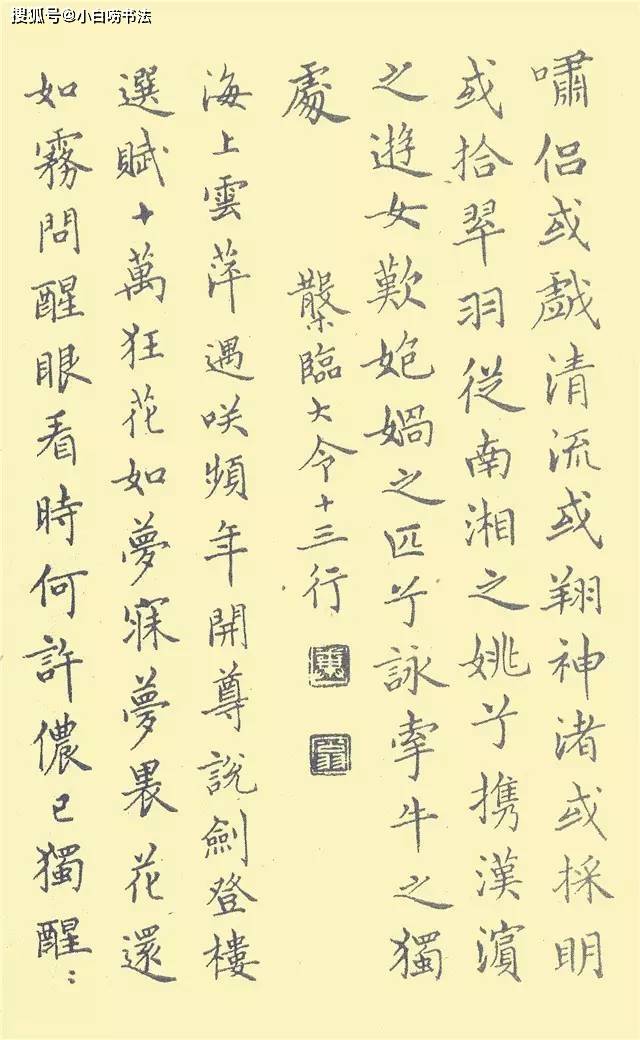 搜狐号@小白唠书法
嘯侣或戲清流或翔神渚或採明
或拾翠羽從南湘之姚兮携漢濵
之遊女歎姽媧之匹兮詠牽牛之獨
處
臨大令十三行
海上雲萍遇咲頻年開尊說劍登樓
選賦十萬狂花如夢寐夢裏花還
如霧問醒眼看時何許儂已獨醒